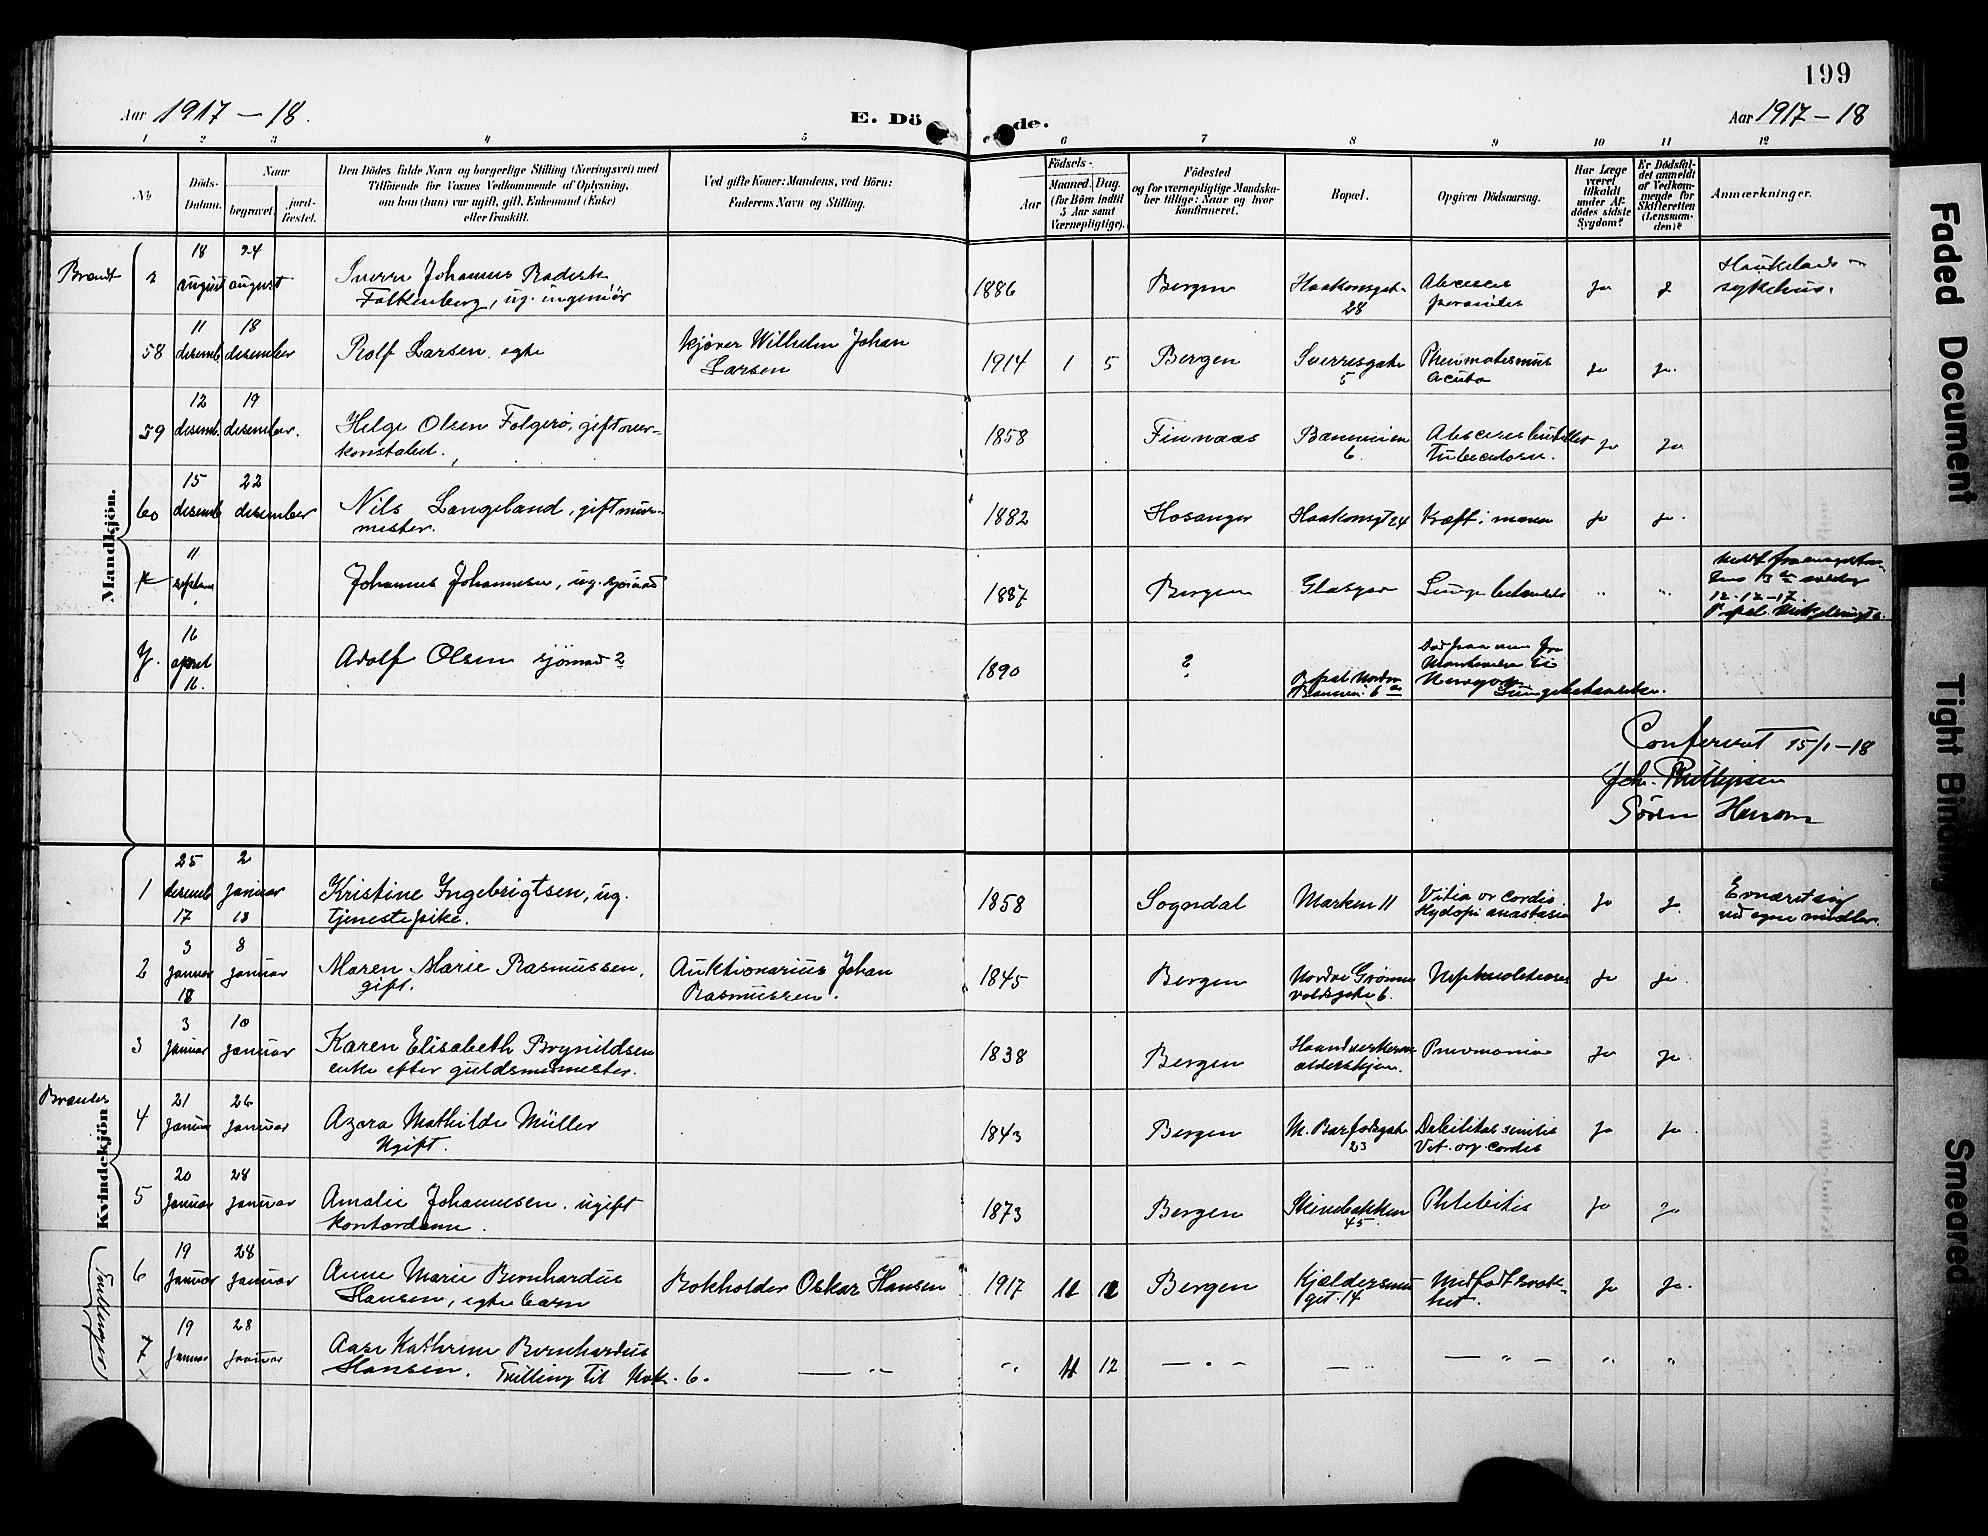 199
Aar 1917 – 18.
E. Dö
de.
Aar 1917 – 18
1 2 3 4 5 6 7 8 9 10 11 12
No
Döds-
Datum.
Naar
begravet.
jord-
fæstet.
Den Dödes fulde Navn og borgerlige Stilling (Næringsvei) med
Tilföiende for Voxnes Vedkommende af Oplysning,
om han (hun) var ugift, gift, Enkemand (Enke)
eller fraskilt.
Ved gifte Koner: Mandens, ved Börn:
Faderens Navn og Stilling.
Födsels-
Aar
Maaned. Dag.
(for Börn indtil
5 Aar samt
Værnepligtige).
Födested
og for værnepligtige Mandska-
ber tillige: Naar og hvor
konfirmeret.
Bopæl.
Opgiven Dödsaarsag.
Har Læge
været
tilkaldt
under Af-
dödes sidste
Sygdom?
Er Dödsfal-
det anmeldt
af Vedkom-
mende for
Skifteretten
(Lensman-
den)?
Anmærkninger.
Mandkjön.
Brændt
18 august
24 august
Johannes
Falkenberg, ug. ingeniör
1886
Bergen
Haakonsgt.
28
ja
Haukelands
sykehus.
58
11 desemb
18 desember
Rolf Larsen, egte
Wilhelm Johan
Larsen
1914 1 5
Bergen
Sverresgate
5
ja
ja.
59
12 desemb.
19 desember.
Helge Olsen Folgerö, gift over-
konstabel.
1858
Finnaas
6
ja
ja.
60
15 desemb
22 desember
Nils Langeland, gift mur-
mester.
1882
Hosanger
Haakonsgt 24
Kræft i maven
ja
ja.
11 septem
Johannes Johannesen, ug. sjömand
1887
Bergen
Glasgow
12-12-17.
16 april
16.
Adolf Olsen sjömand ?
1890
?
Conferert 15/1–18
Sören Hansen
Kvindekjön
1
25 desemb
17
2 januar
18
Kristine Ingebrigtsen, ug.
tjenestepike.
1858
Sogndal
Marken 11
Vitia or cordis.
ja
ja.
Ernært sig
ved egne midler.
2
3 januar
18
8 januar
Maren Marie Rasmussen,
gift.
Auktionarius Johan
Rasmussen.
1845
Bergen
Nordre Grönne
voldsgate 6.
ja
ja.
3
3 januar
10 januar
Karen Elisabeth Brynildsen
enke efter guldsmedmester.
1838
Bergen
Haandverkernes
aldershjem.
Pneumonia
ja
ja.
4
21 januar
26 januar
Azora Mathilde Müller
Ugift.
1843
Bergen
23
Debilitas senilis
Vit. org. cordis
ja
ja.
5
20 januar
28 januar
Amalie Johannesen, ugift
kontordame.
1873
Bergen
Steinebakken
45.
Phlebitis
ja
ja
Tvillinger
6
19 januar
28 januar
Anne Marie Bernhardus
Hansen, egte barn
Bokholder Oskar Hansen
1917 11 12
Bergen
Kjeldersmu
gt. 14
Medfödt svak-
het.
ja
ja.
7
19 januar
28 januar
Aase Kathrine Bernhardus
Hansen. Tvilling til No. 6.
11 12
Faded Document
Tight Binding
Smeared